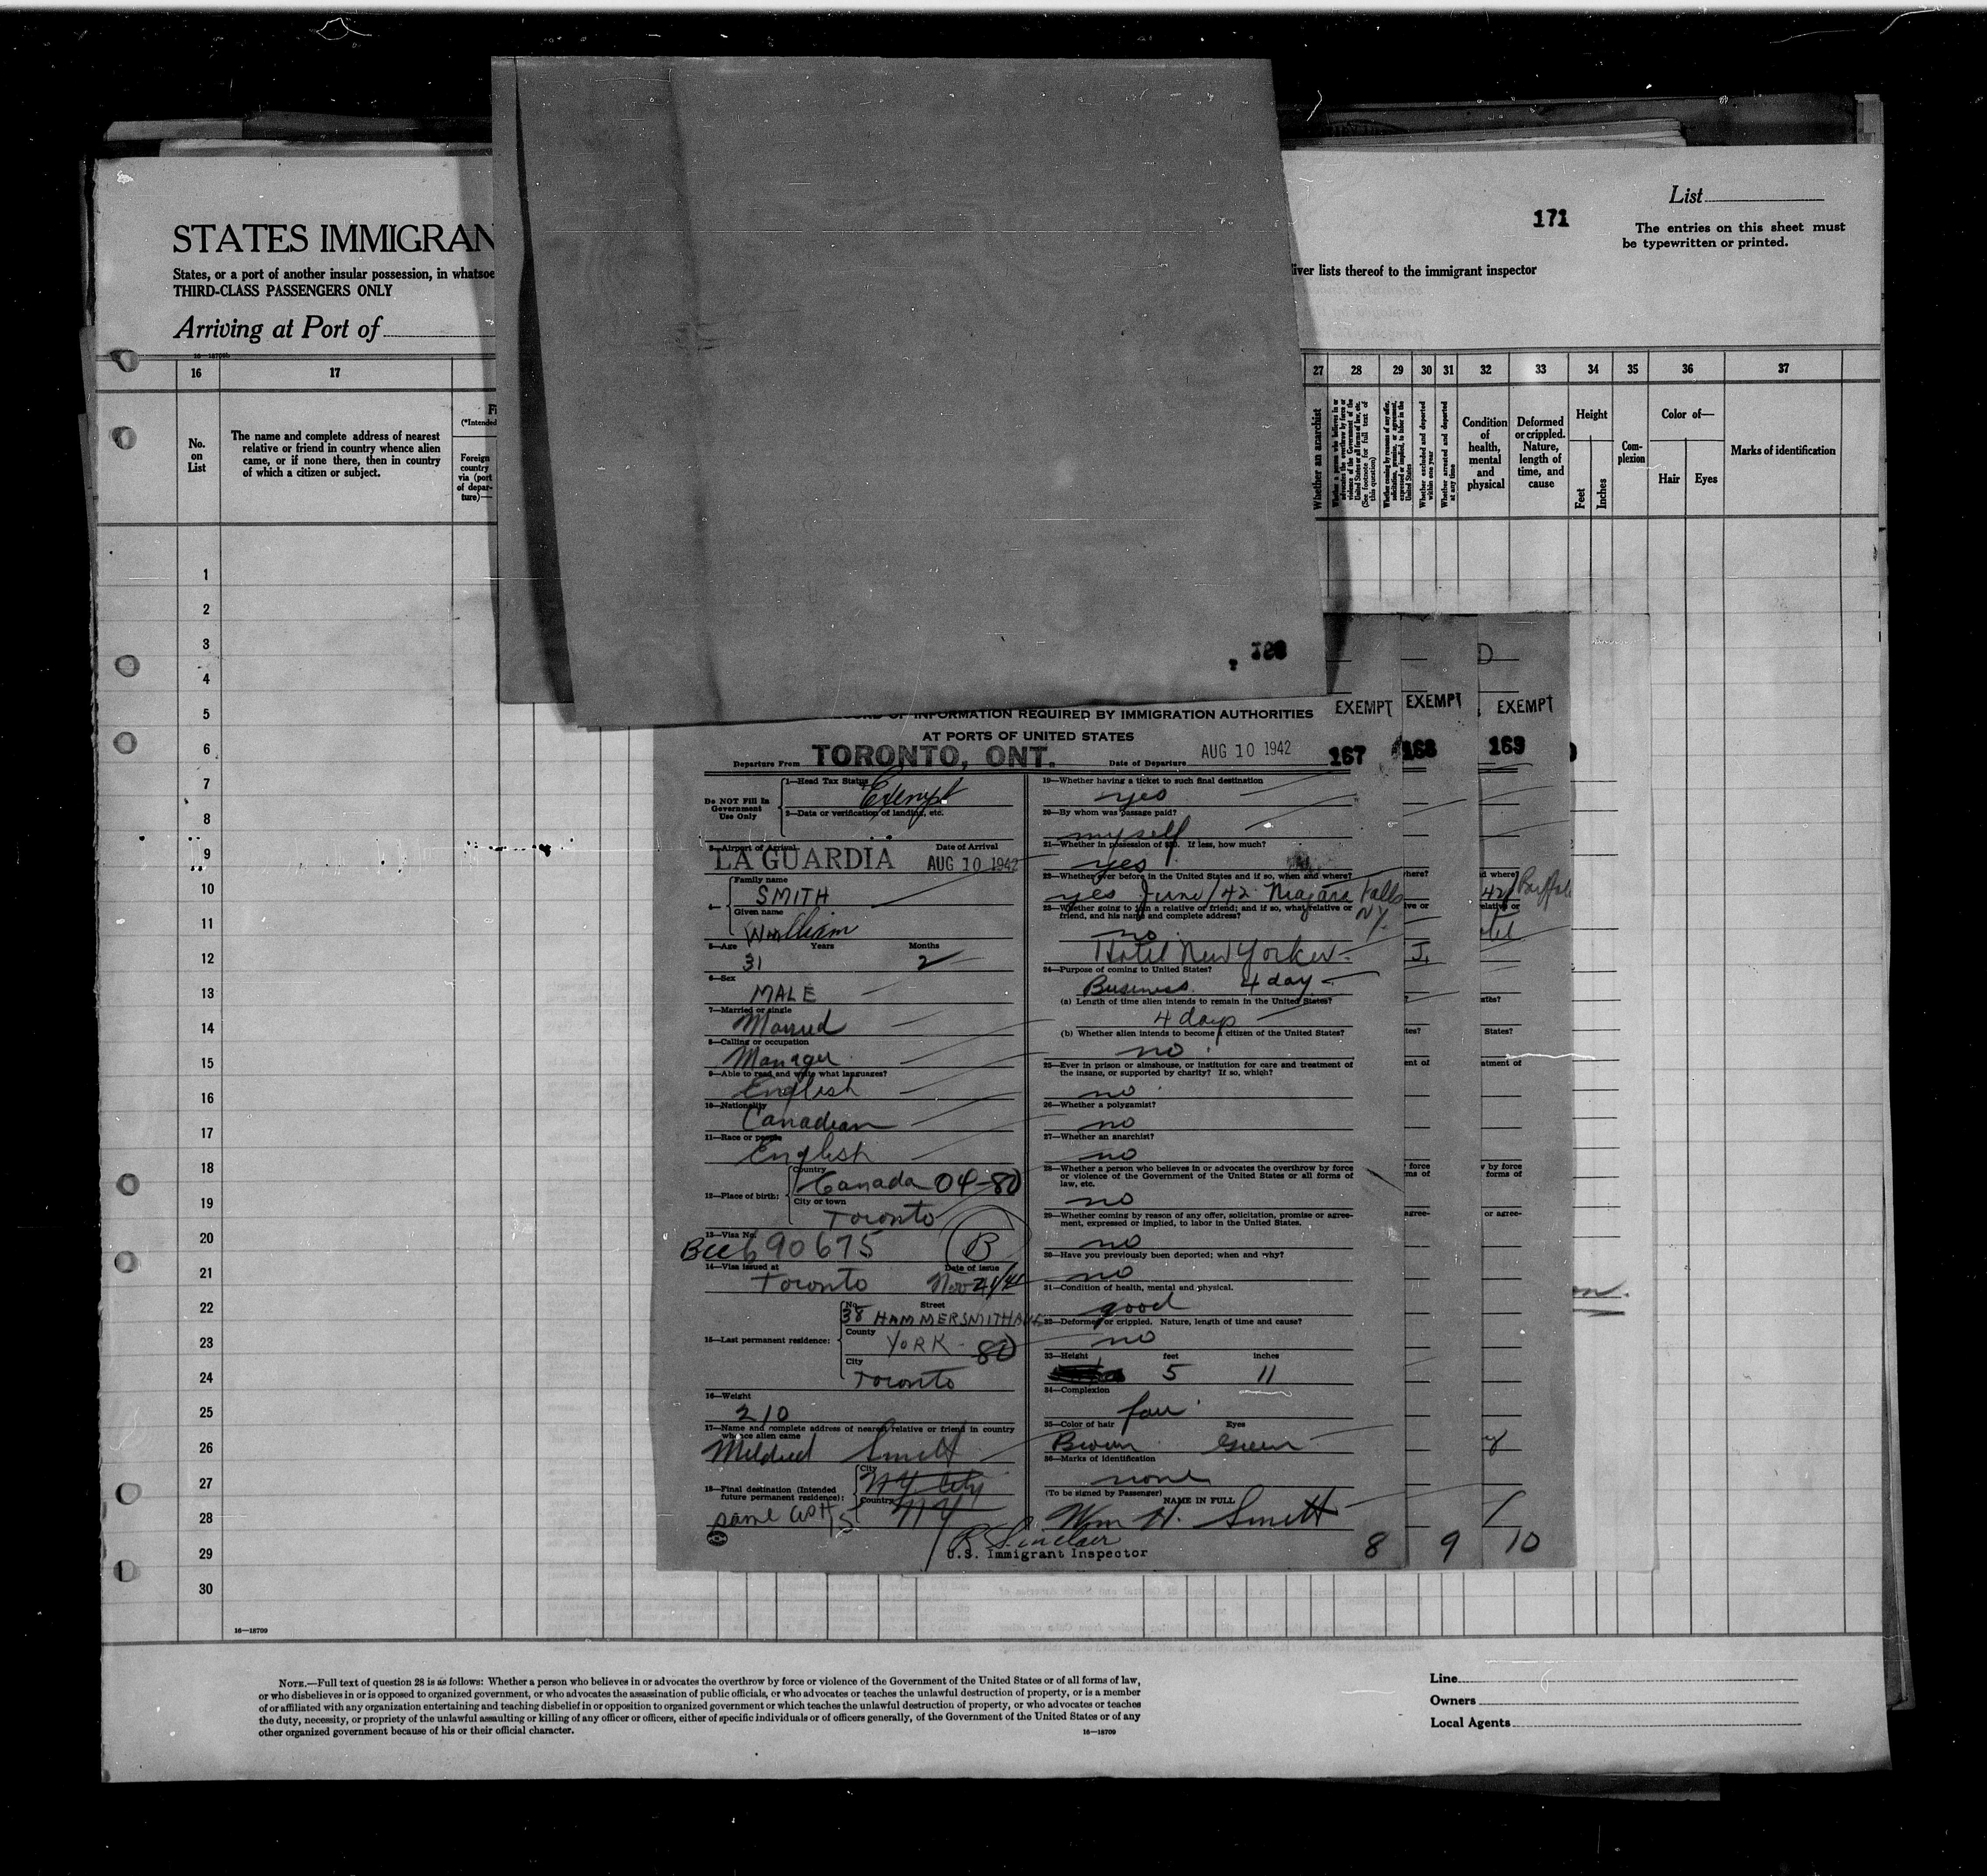 List
171
The entries on this sheet must
be typewritten or printed.
STATES IMMIGRAN
States, or a port of another insular possession, in whatsoe
liver lists thereof to the immigrant inspector
THIRD-CLASS PASSENGERS ONLY
Arriving at Port of
16 17 27 28 29 30 31 32 33 34 35 36 37
No.
on
List
The name and complete address of nearest
relative or friend in country whence alien
came, or if none there, then in country
of which a citizen or subject.
(*Intended
Foreign
country
via (port
of depar-
ture)—
Whether an anarchist
Whether a person who believes in or
advocates the overthrow by force or
violence of the Government of the
United States or all forms of law, etc.
(See footnote for full text of
this question)
Whether coming by reason of any offer,
solicitation, promise, or agreement,
expressed or implied, to labor in the
United States
Whether excluded and deported
within one year
Whether arrested and deported
at any time
Condition
of
health,
mental
and
physical
Deformed
or crippled.
Nature,
length of
time, and
cause
Height
Feet
Inches
Com-
plexion
Color of—
Hair Eyes
Marks of identification
1
2
3
4
5
6
7
8
9
10
11
12
13
14
15
16
17
18
19
20
21
22
23
24
25
26
27
28
29
30
OF INFORMATION REQUIRED BY IMMIGRATION AUTHORITIES
AT PORTS OF UNITED STATES
EXEMPT EXEMPT EXEMPT
Departure From TORONTO, ONT. Date of Departure AUG 10 1942
167 168 169
Do NOT Fill In
Government
Use Only
1—Head Tax Status
Exempt
2—Data or verification of landing, etc.
3—Airport of Arrival Date of Arrival
LA GUARDIA AUG 10 1942
4—
Family name
SMITH
Given name
William
5—Age Years Months
31 2
6—Sex
MALE
7—Married or single
Married
8—Calling or occupation
Manager
9—Able to read and write what languages?
English
10—Nationality
Canadian
11—Race or people
English
12—Place of birth:
Country
Canada 04-80
City or town
Toronto
13—Visa No.
690675 B
14—Visa issued at Date of issue
Toronto Nov
15—Last permanent residence:
No. Street
38 HAMMERSMITH AVE
County
YORK - 80
City
Toronto
16—Weight
210
17—Name and complete address of nearest relative or friend in country
whence alien came
Mildred Smith
18—Final destination (Intended
future permanent residence):
City
N.Y. City
Country
NY
same as # 15
19—Whether having a ticket to such final destination
yes
20—By whom was passage paid?
myself
21—Whether in possession of $50. If less, how much?
yes
22—Whether ever before in the United States and if so, when and where?
yes June/42 Niagara Falls
N.Y.
23—Whether going to join a relative or friend; and if so, what relative or
friend, and his name and complete address?
no
Hotel New Yorker
24—Purpose of coming to United States?
Business 4 day
(a) Length of time alien intends to remain in the United States?
4 days
(b) Whether alien intends to become a citizen of the United States?
no
25—Ever in prison or almshouse, or institution for care and treatment of
the insane, or supported by charity? If so, which?
no
26—Whether a polygamist?
no
27—Whether an anarchist?
no
28—Whether a person who believes in or advocates the overthrow by force
or violence of the Government of the United States or all forms of
law, etc.
no
29—Whether coming by reason of any offer, solicitation, promise or agree-
ment, expressed or implied, to labor in the United States.
no
30—Have you previously been deported; when and why?
no
31—Condition of health, mental and physical.
good
32—Deformed or crippled. Nature, length of time and cause?
no
33—Height feet inches
5 11
34—Complexion
fair
35—Color of hair Eyes
Brown Green
36—Marks of identification
none
(To be signed by Passenger)
NAME IN FULL
Wm H. Smith
R Sinclair
U.S. Immigrant Inspector
8 9 10
16—18709
NOTE.—Full text of question 28 is as follows: Whether a person who believes in or advocates the overthrow by force or violence of the Government of the United States or of all forms of law,
or who disbelieves in or is opposed to organized government, or who advocates the assassination of public officials, or who advocates or teaches the unlawful destruction of property, or is a member
of or affiliated with any organization entertaining and teaching disbelief in or opposition to organized government or which teaches the unlawful destruction of property, or who advocates or teaches
the duty, necessity, or propriety of the unlawful assaulting or killing of any officer or officers, either of specific individuals or of officers generally, of the Government of the United States or of any
other organized government because of his or their official character.
16—18709
Line
Owners
Local Agents